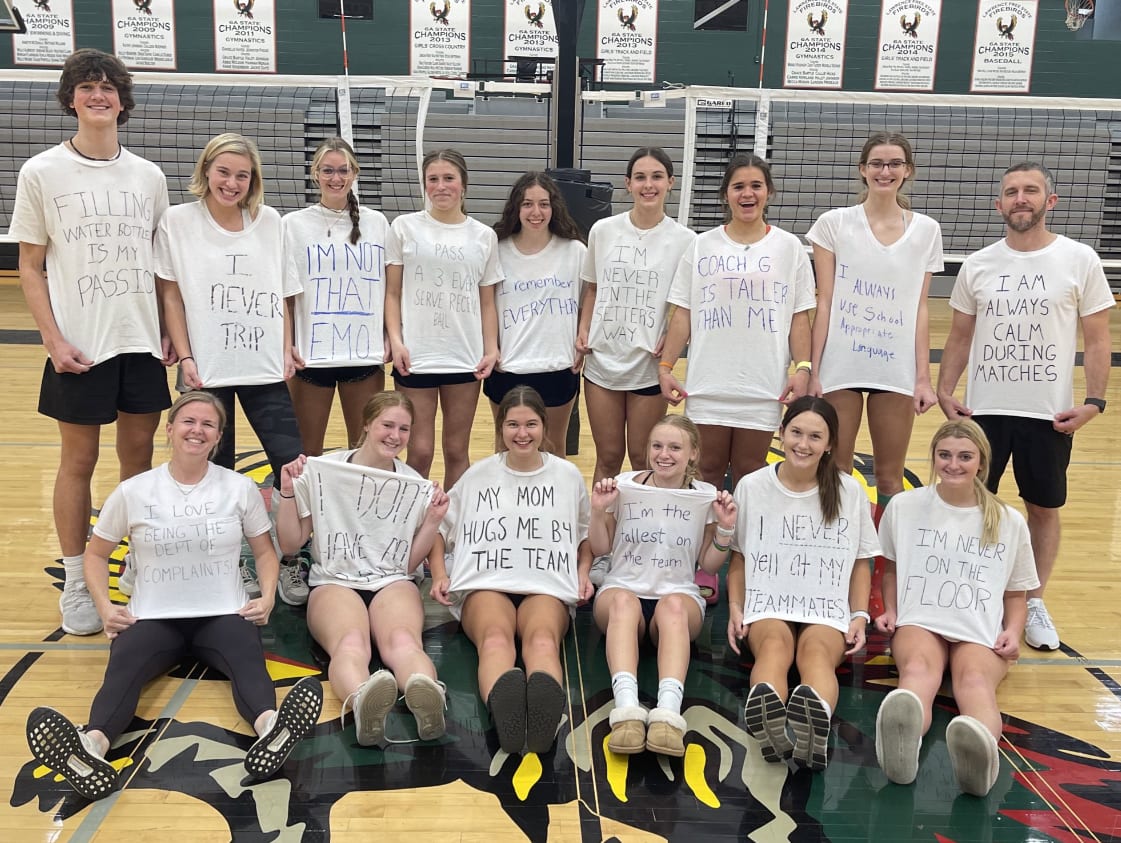 6A STATE
CHAMPIONS
2009
6A STATE
CHAMPIONS
2010
GYMNASTICS
6A STATE
CHAMPIONS
2011
GYMNASTICS
6A STATE
CHAMPIONS
GIRLS CROSS COUNTRY
6A STATE
CHAMPIONS
2013
GYMNASTICS
6A STATE
CHAMPIONS
2013
GIRLS TRACK AND FIELD
FIREBIRDS
6A STATE
CHAMPIONS
2014
GYMNASTICS
LAWRENCE FREE STATE
FIREBIRDS
6A STATE
CHAMPIONS
2014
GIRLS TRACK AND FIELD
LAWRENCE FREE STATE
FIREBIRDS
6A STATE
CHAMPIONS
2015
BASEBALL
GARED
FILLING
WATER BOTTLES
IS MY
PASSION
I
NEVER
TRIP
I'M NOT
THAT
EMO
I PASS
A 3 EVERY
SERVE RECEIVE
BALL
I remember
EVERYTHING
I'M
NEVER
IN THE
SETTERS
WAY
COACH G
IS TALLER
THAN ME
I ALWAYS
Use School
Appropriate
Language
I AM
ALWAYS
CALM
DURING
MATCHES
I LOVE
BEING THE
DEPT OF
COMPLAINTS!
I DON'T
HAVE
MY MOM
HUGS ME B4
THE TEAM
Im the
tallest on
the team
I NEVER
yell at MY
TEAMMATES
I'M NEVER
ON THE
FLOOR